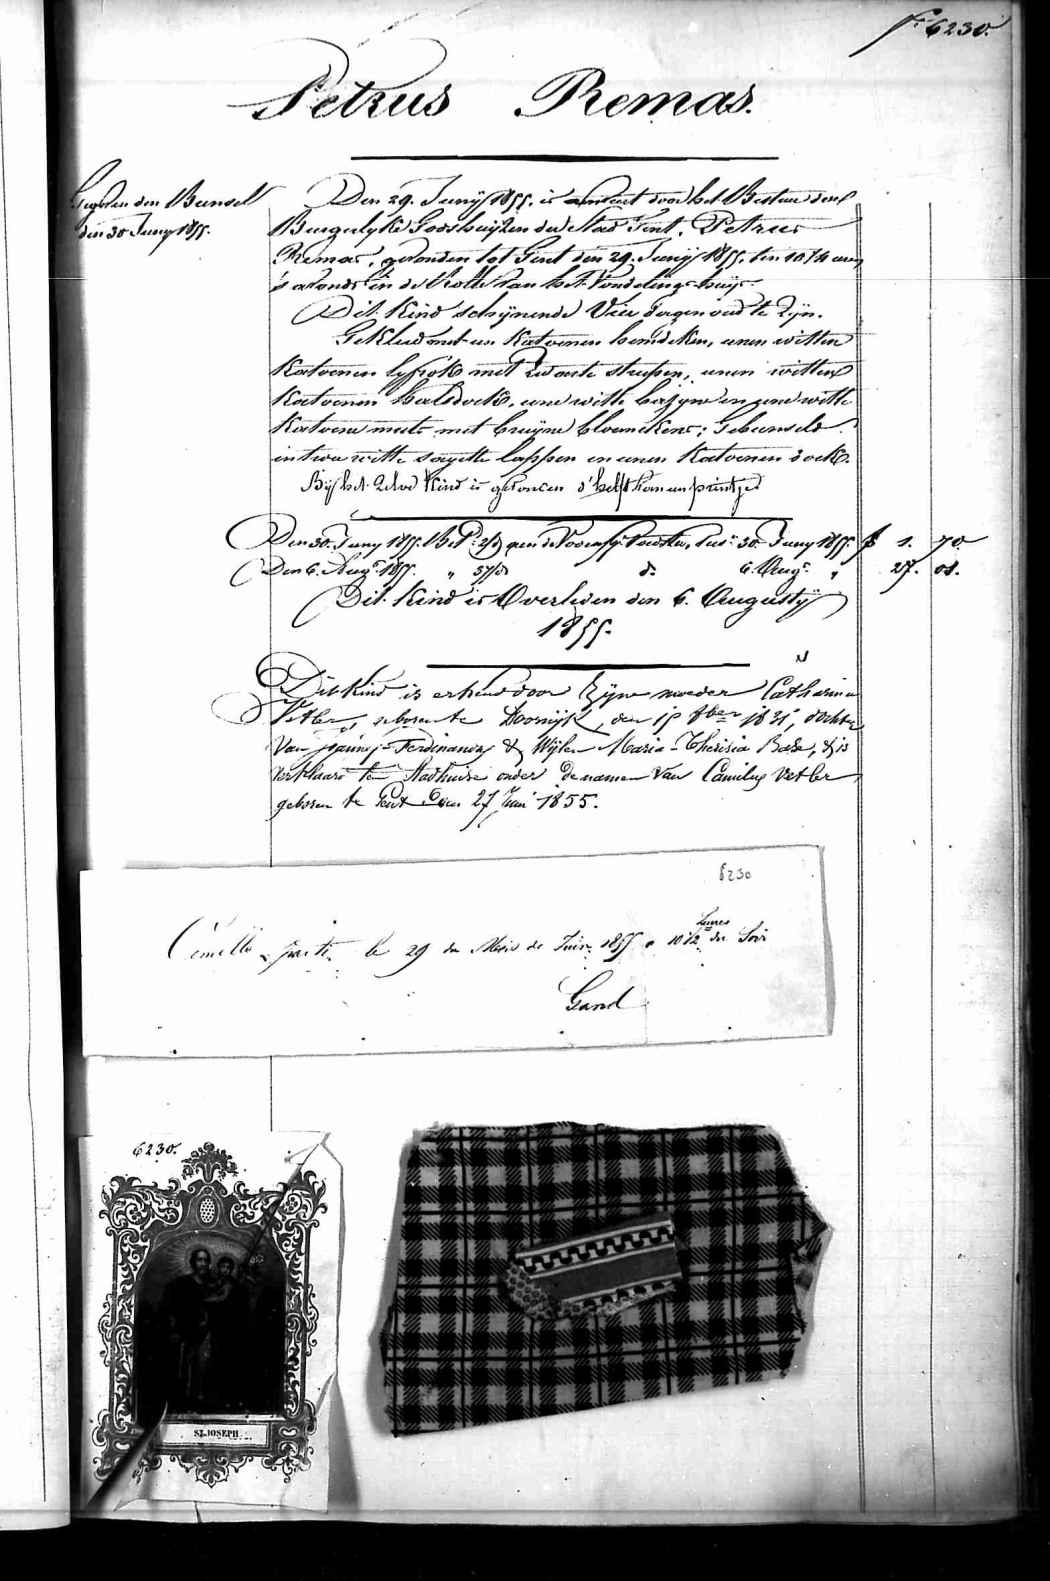 Fo 6230.
Petrus Remas.
den 30 Juny 1855.
Den 29. Junij 1855. is aenveert door het Bestuer der
Burgerlyke Godshuyzen der Stad Gent, Petrus
Remas, gevonden tot Gent den 29. Junij 1855. ten 10 1/4 uren
's avonds in de Rolle van het Vondelings-huys.
Dit Kind schynende Vier dagen oud te Zyn.
Gekleed met een Katoenen hemdeken, eenen witten
Katoenen lyfrok met Zwarte streepen, eenen witten
Katoenen halsdoek, eene witte bazyne en eene witte
Katoene muts met bruyne bloemekens; Gebunseld
in twee witte sayette lappen en eenen Katoenen doek.
By het Zelve Kind is gevonden d'helft van een printje
Den 30. Juny 1855. 30 Juny 1855. f 1. 70.
Den 6. Augt. 1855. " do 6. Augt. " 27. 01.
Dit Kind is Overleden den 6. Augusty
1855.
Dit kind is erkend door Zyne moeder Catharina
Vetter, geboren te Doornijk, den 18ber 1831, dochter
Van Ferdinandus & Wijlen Maria-Theresia & is
verklaard ten Stadhuize onder de namen van Camilus Vetter
geboren te Gent den 27 Juni 1855.
6230
Camille partie le 29 du Mois de Juin 1855 a 10 1/2 heures du Soir
Gand
6230.
ST. JOSEPH